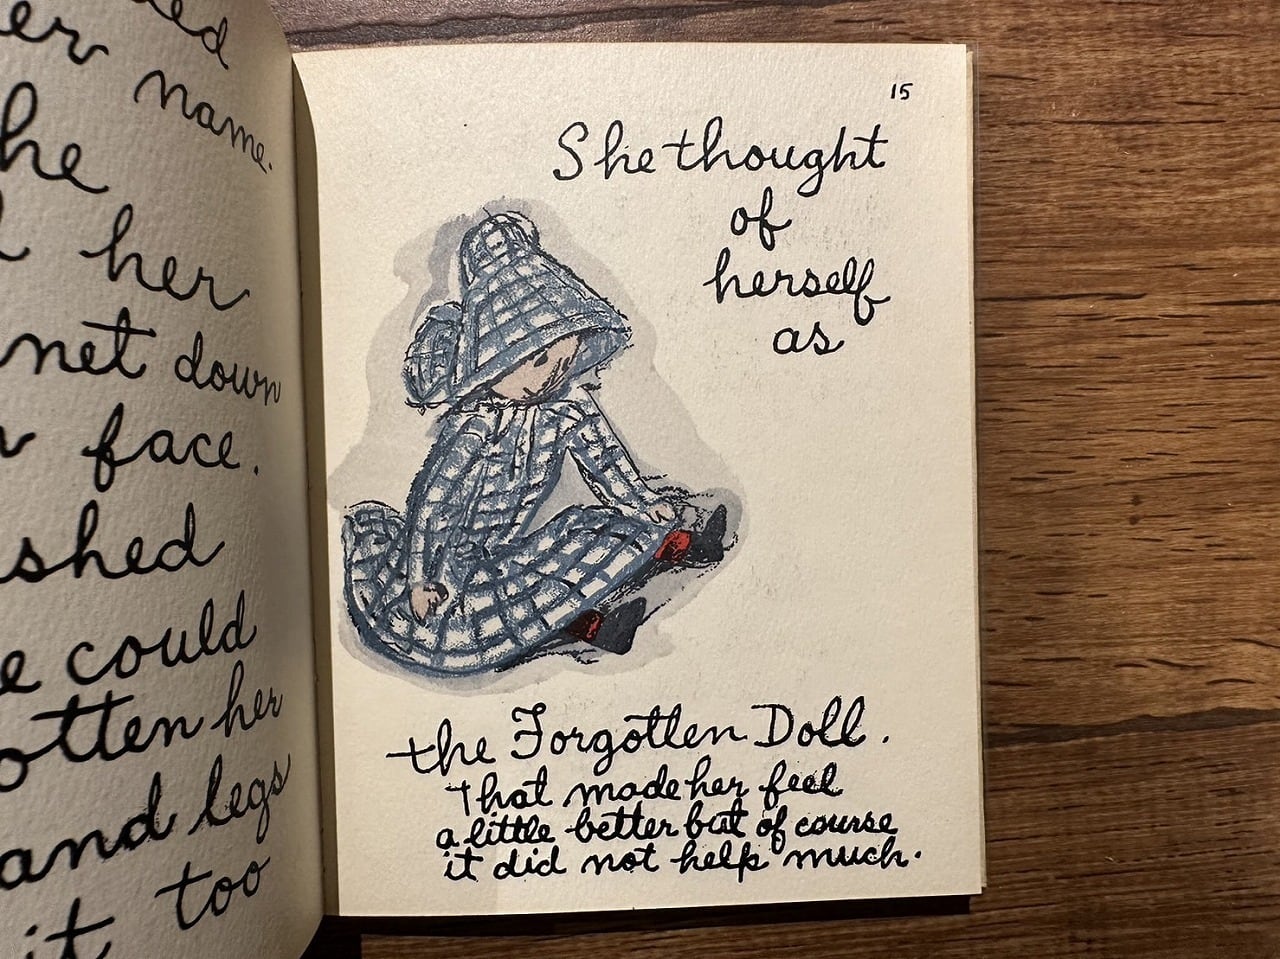 name.
he
her
net down
face.
shed
could
her
and legs
it too
15
She thought
of
herself
as
the Forgotten Doll.
That made her feel
a little better but of course
it did not help much.